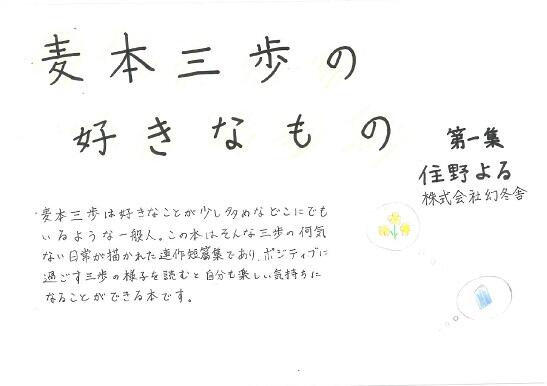 麦本三歩の
好きなもの
第一集
住野よる
株式会社幻冬舎
・麦本三歩は好きなことが少し多めなどこにでも
いるような一般人。この本はそんな三歩の何気
ない日常が描かれた連作短篇集であり、ポジティブに
過ごす三歩の様子を読むと自分も楽しい気持ちに
なることができる本です。